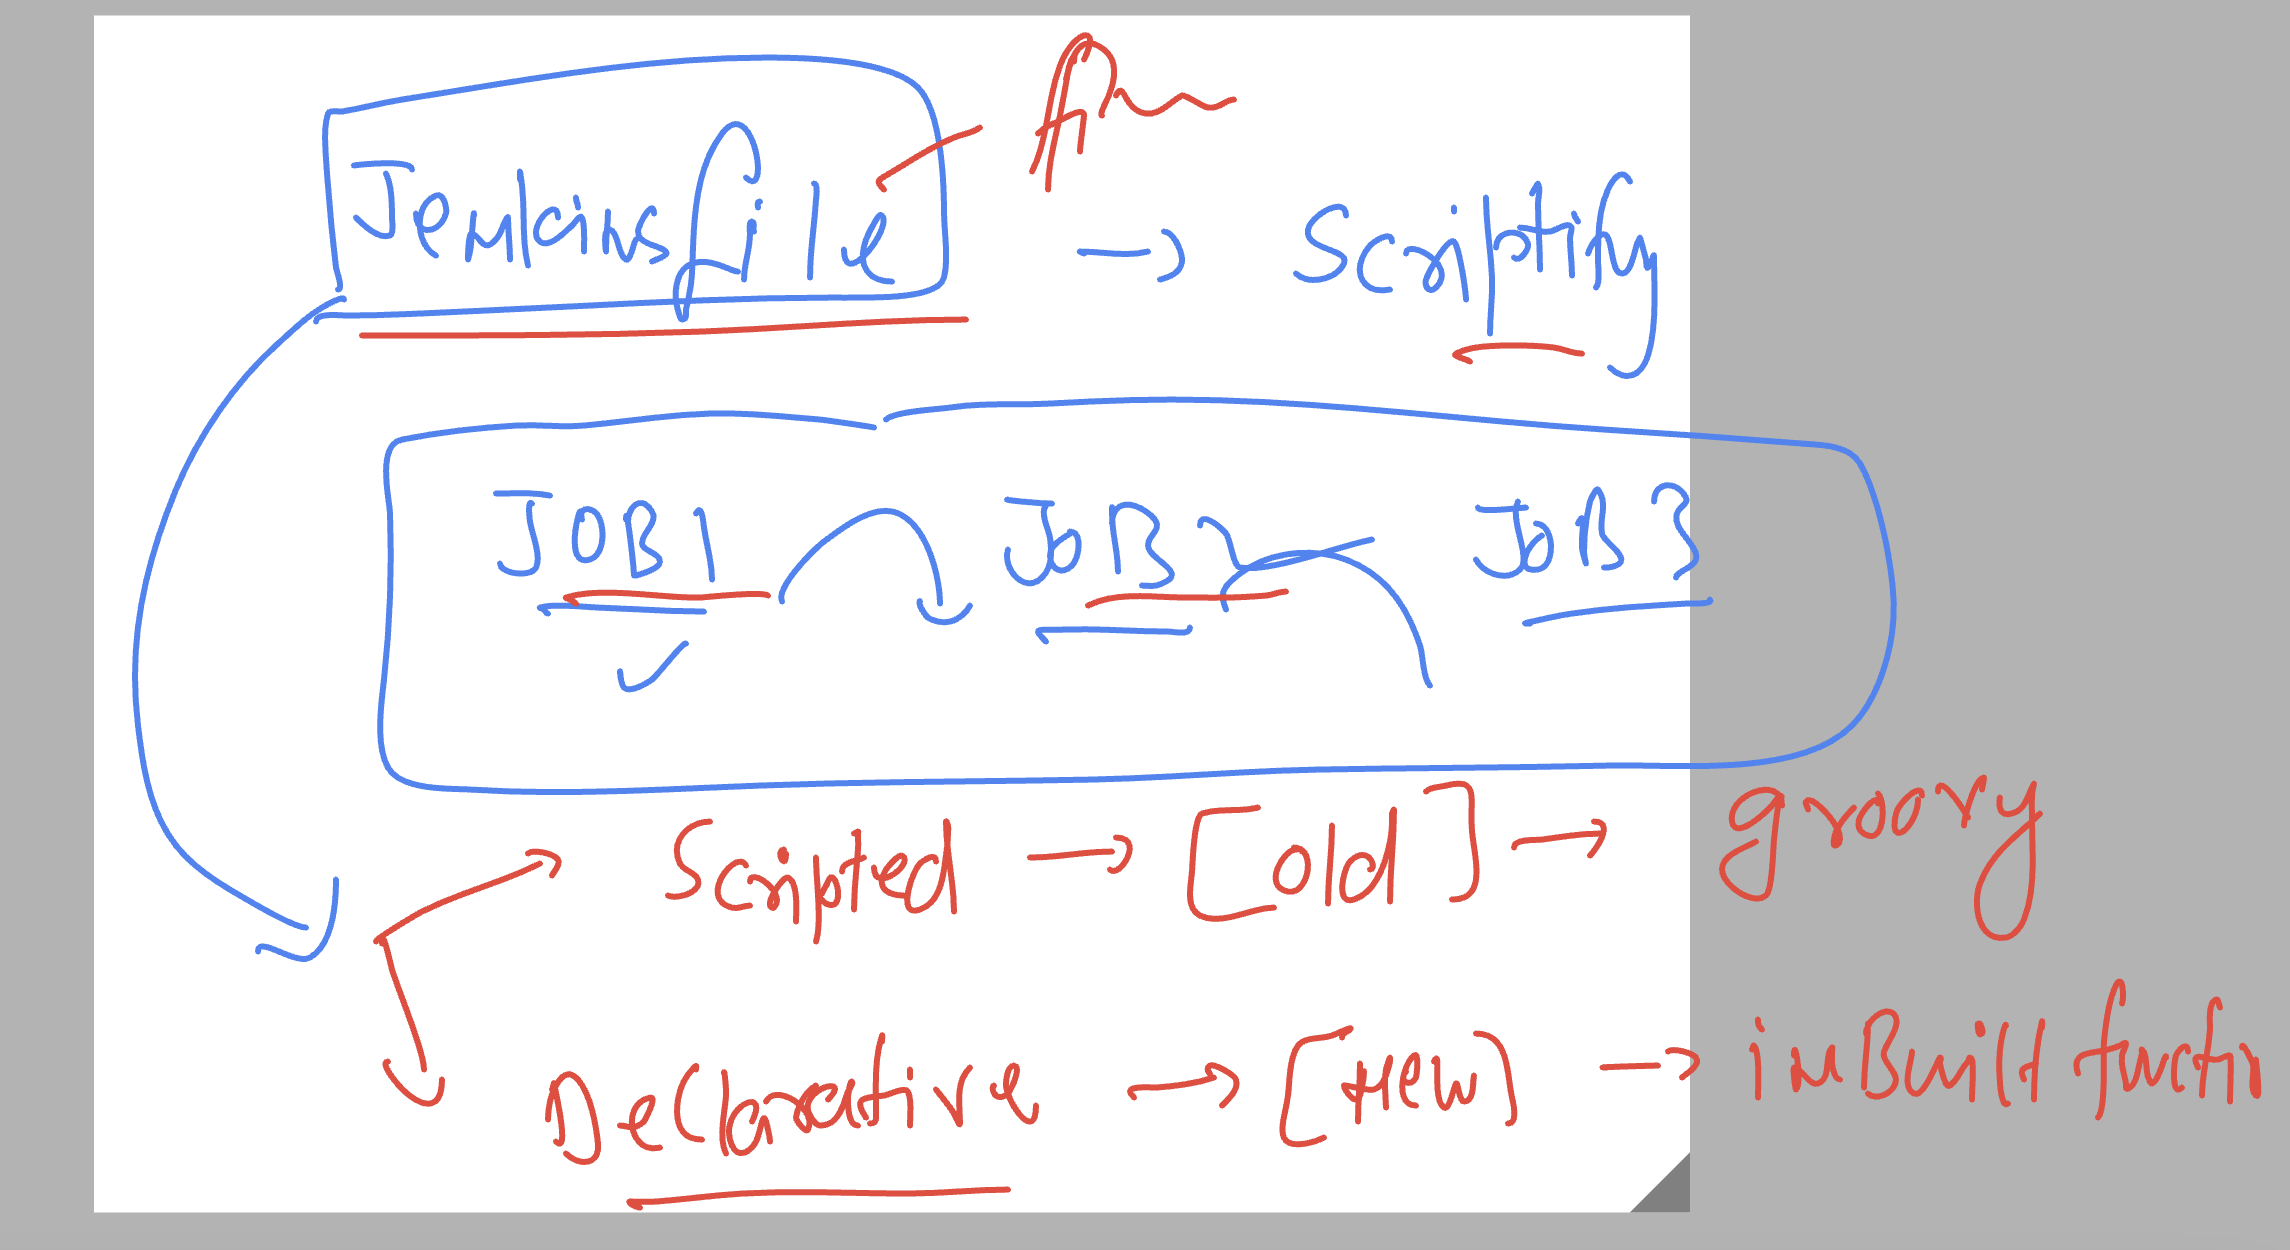 Jenkinsfile → Scripting
JOB1 JOB2 JOB3
Scripted → [old] → groovy
Declarative → [new] → inBuilt